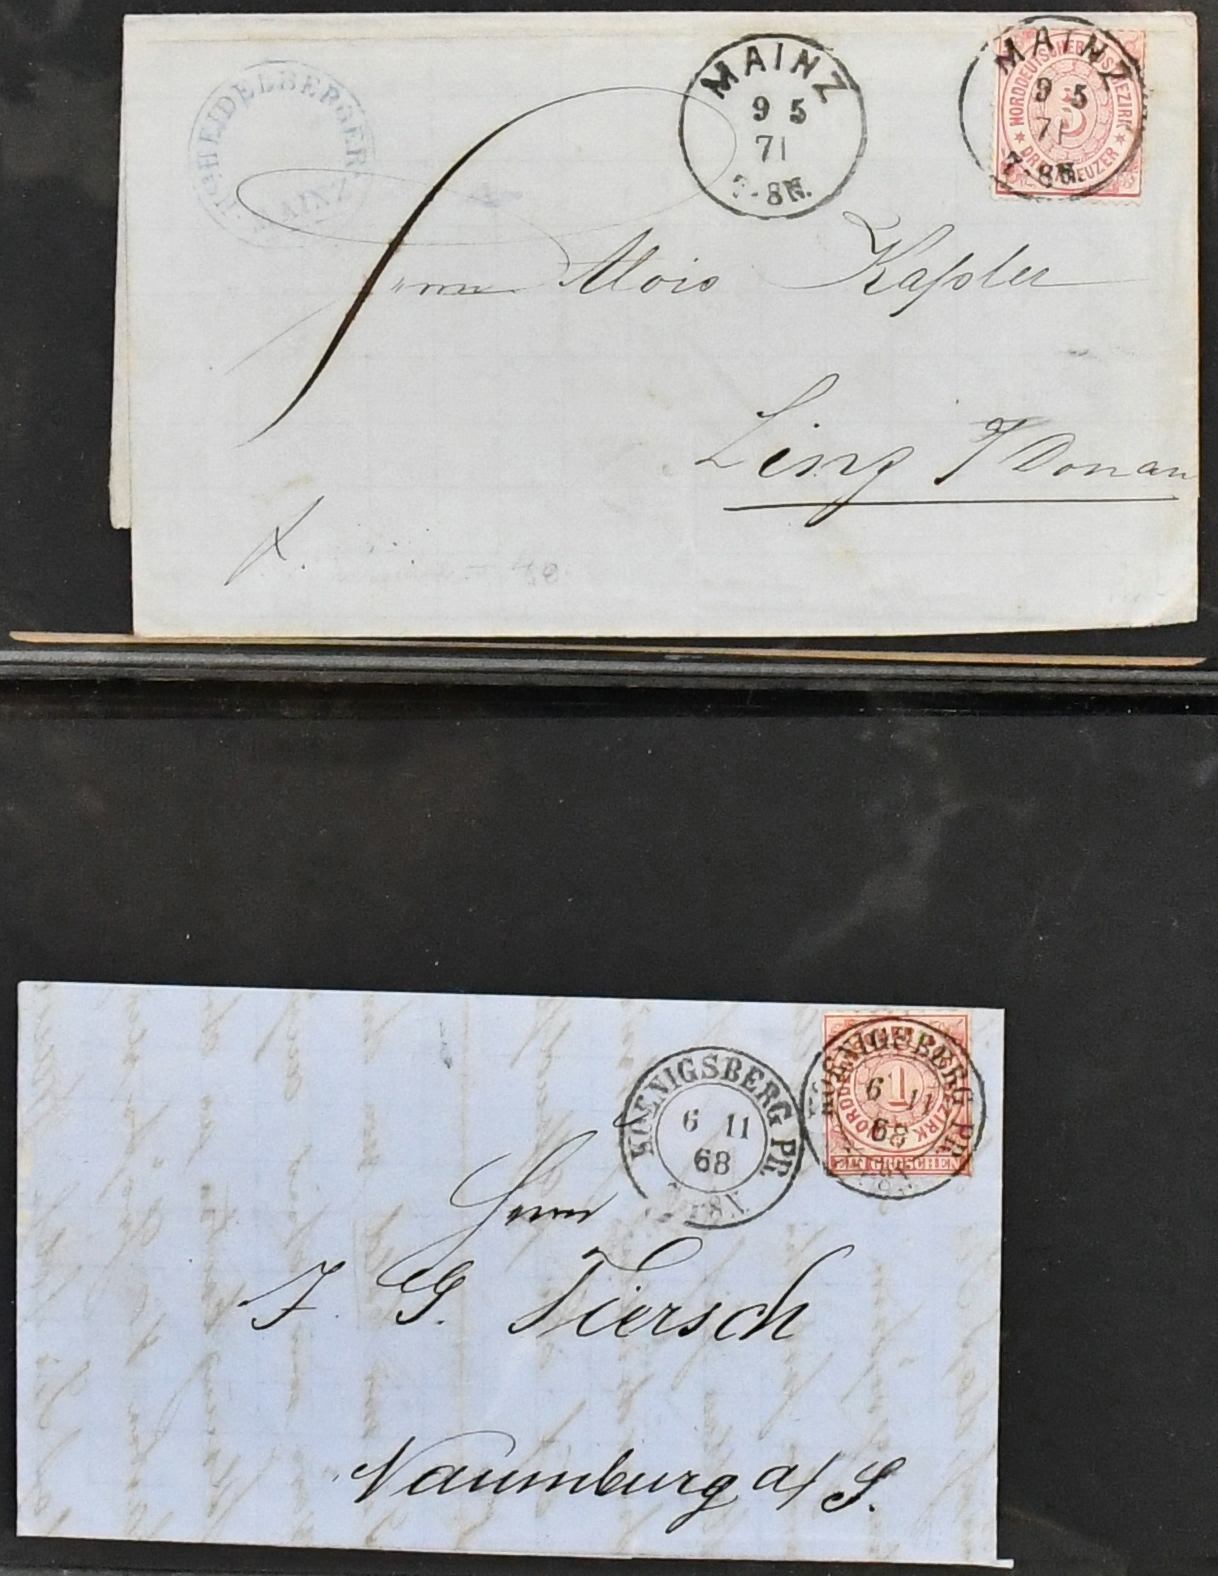 HEIDELBERGER
MAINZ
MAINZ
9 5
71
7-8N.
MAINZ
9 5
71
7-8N.
NORDDEUTSCHER POSTBEZIRK
3
DREI KREUZER
Herrn Alois Kaßler
Linz a/Donau
KOENIGSBERG PR.
6 11
68
KOENIGSBERG PR.
6 11
68
1
EIN GROSCHEN
Herrn
J. G. Tiersch
Naumburg a/S.